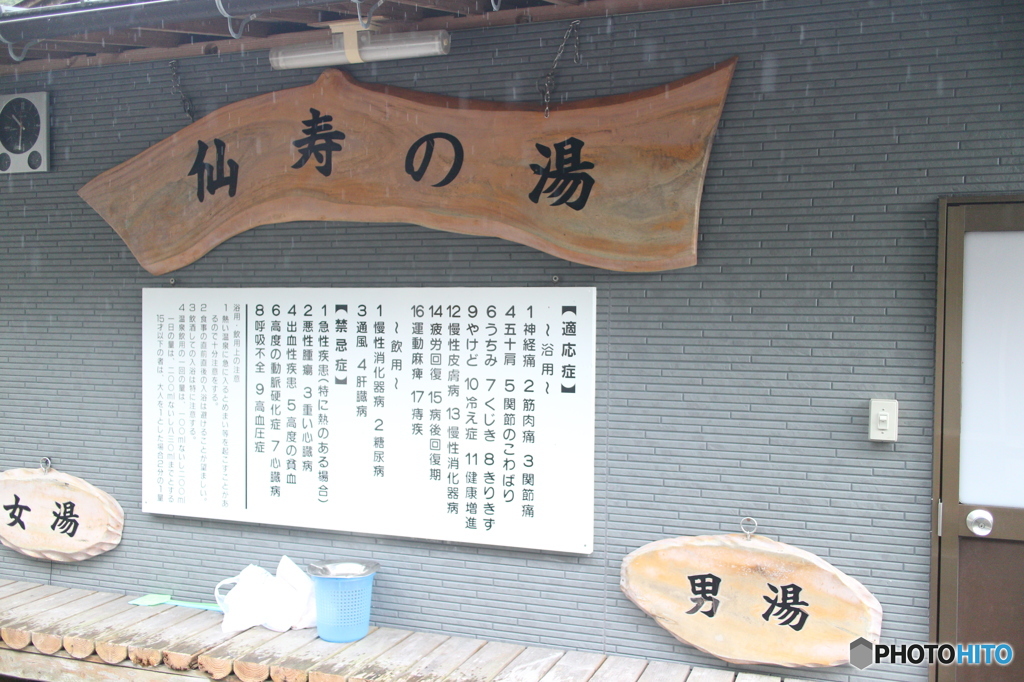 仙寿の湯
【適応症】
～浴用～
1神経痛 2筋肉痛 3関節痛
4五十肩 5関節のこわばり
6うちみ 7くじき 8きりきず
9やけど 10冷え症 11健康増進
12慢性皮膚病 13慢性消化器病
14疲労回復 15病後回復期
16運動麻痺 17痔疾
～飲用～
1慢性消化器病 2糖尿病
3通風 4肝臓病
【禁忌症】
1急性疾患(特に熱のある場合)
2悪性腫瘍 3重い心臓病
4出血性疾患 5高度の貧血
6高度の動脈硬化症 7心臓病
8呼吸不全 9高血圧症
浴用・飲用上の注意
1熱い温泉に急に入るとめまい等を起こすことがあ
るので十分注意をする。
2食事の直前直後の入浴は避けることが望ましい。
3飲酒しての入浴は特に注意する。
4温泉飲用の一回の量は、一〇〇mlないし二〇〇ml
一日の量は、二〇〇mlないし
までとする
15才以下の者は、大人を1とした場合2分の1量
女湯
男湯
PHOTOHITO